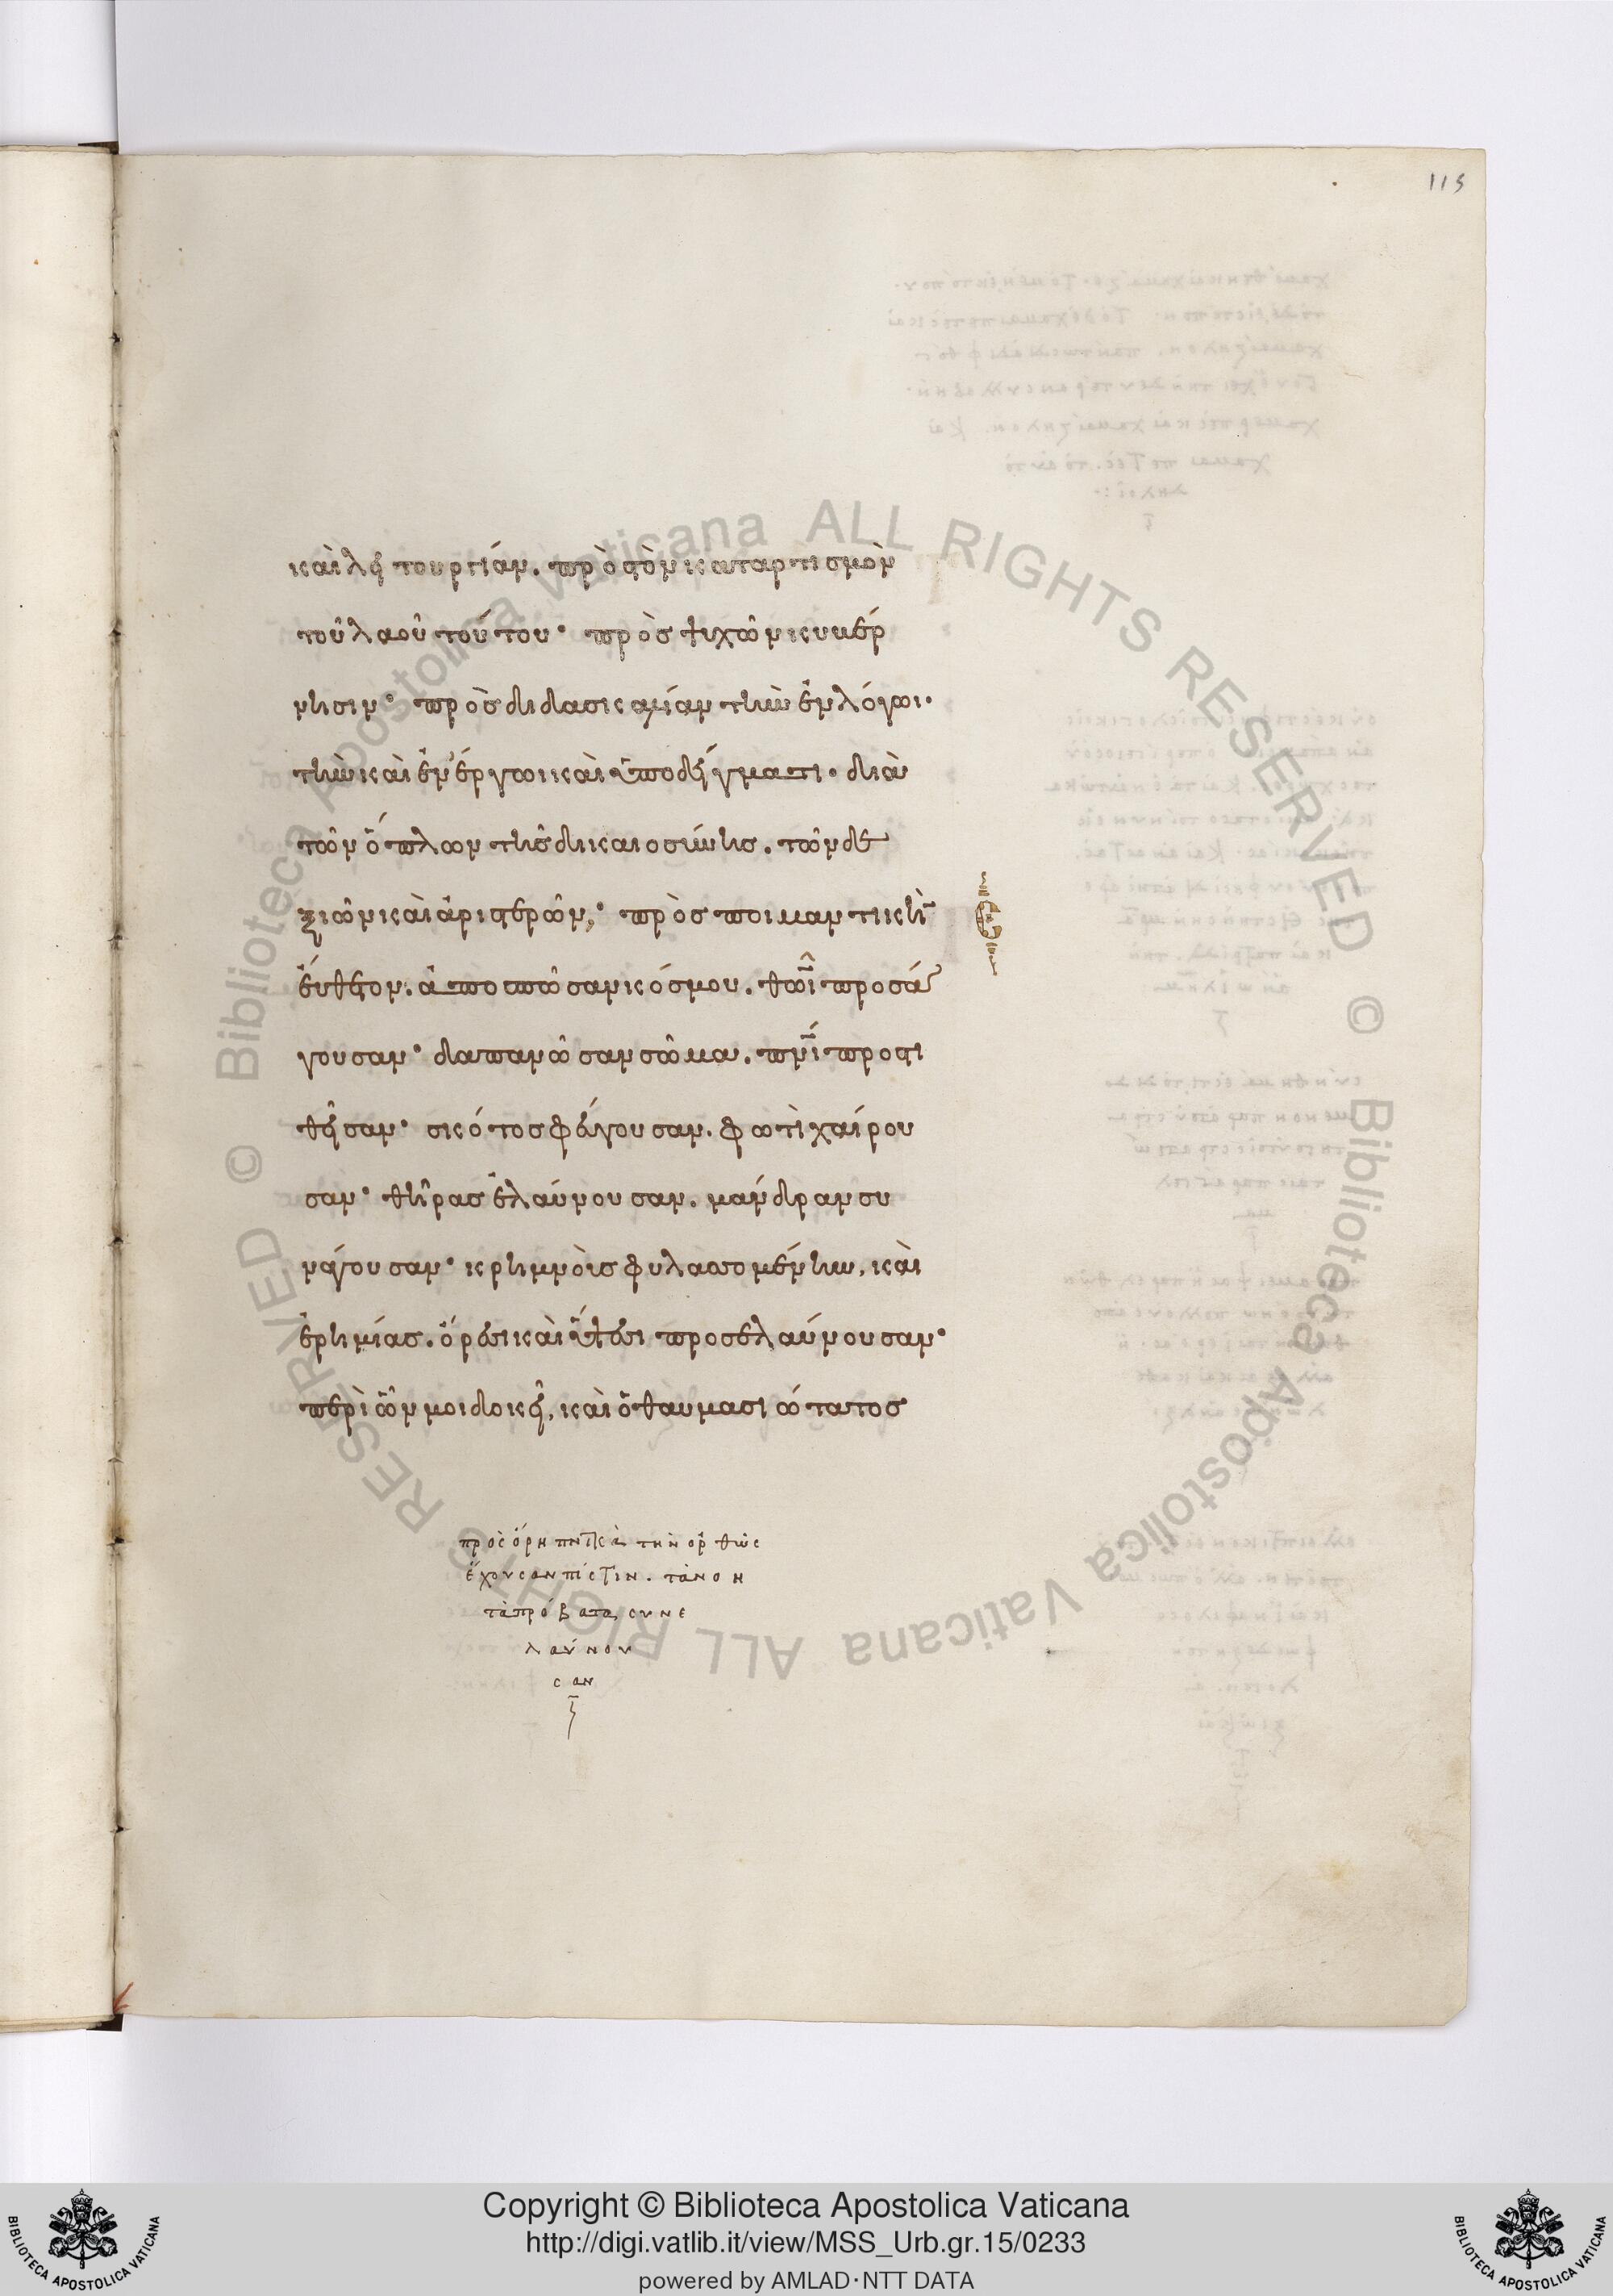 115
καὶ λειτουργίαν. πρὸς τὸν καταρτισμὸν
τοῦ λαοῦ τούτου· πρὸς ψυχῶν κυβέρ
νησιν· πρὸς διδασκαλίαν τὴν ἐν λόγωι·
τὴν καὶ ἐν ἔργωι καὶ ὑποδείγματι· διὰ
τῶν ὅπλων τῆς δικαιοσύνης. τῶν δε
ξιῶν καὶ ἀριστερῶν· πρὸς ποιμαντικὴν
εὔθετον. ἀποπτῶσαν κόσμου. θῶι προσά
γουσαν· δαπανῶσαν σῶμα. πνι προστι
θεῖσαν· σκότος φεύγουσαν. φωτὶ χαίρου
σαν· θῆρας ἐλαύνουσαν. μάνδραν συ
νάγουσαν· κρημνοὺς φυλασσομένην, καὶ
ἐρημίας. ὄρεσι καὶ ὕψεσι προσελαύνουσαν·
περὶ ὧν μοι δοκεῖ, καὶ ὁ θαυμασιώτατος
Ε
πρὸς ὄρη πνικὰ τὴν ὀρθῶς
ἔχουσαν πίστιν. τὰ νοη
τὰ πρόβατα, συνε
λαύνου
σαν
Copyright © Biblioteca Apostolica Vaticana
http://digi.vatlib.it/view/MSS_Urb.gr.15/0233
powered by AMLAD·NTT DATA
BIBLIOTECA APOSTOLICA VATICANA
BIBLIOTECA APOSTOLICA VATICANA
© Biblioteca Apostolica Vaticana ALL RIGHTS RESERVED
© Biblioteca Apostolica Vaticana ALL RIGHTS RESERVED